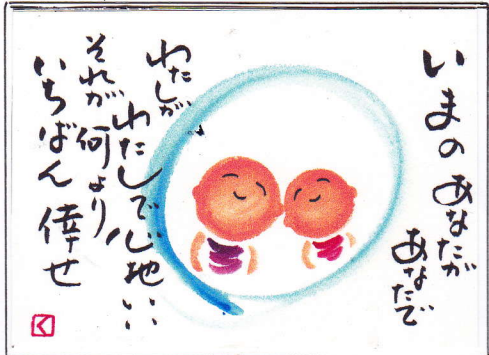 いまの あなたが
あなたで
わたしが
わたしで心地いい
それが何より
いちばん倖せ
く